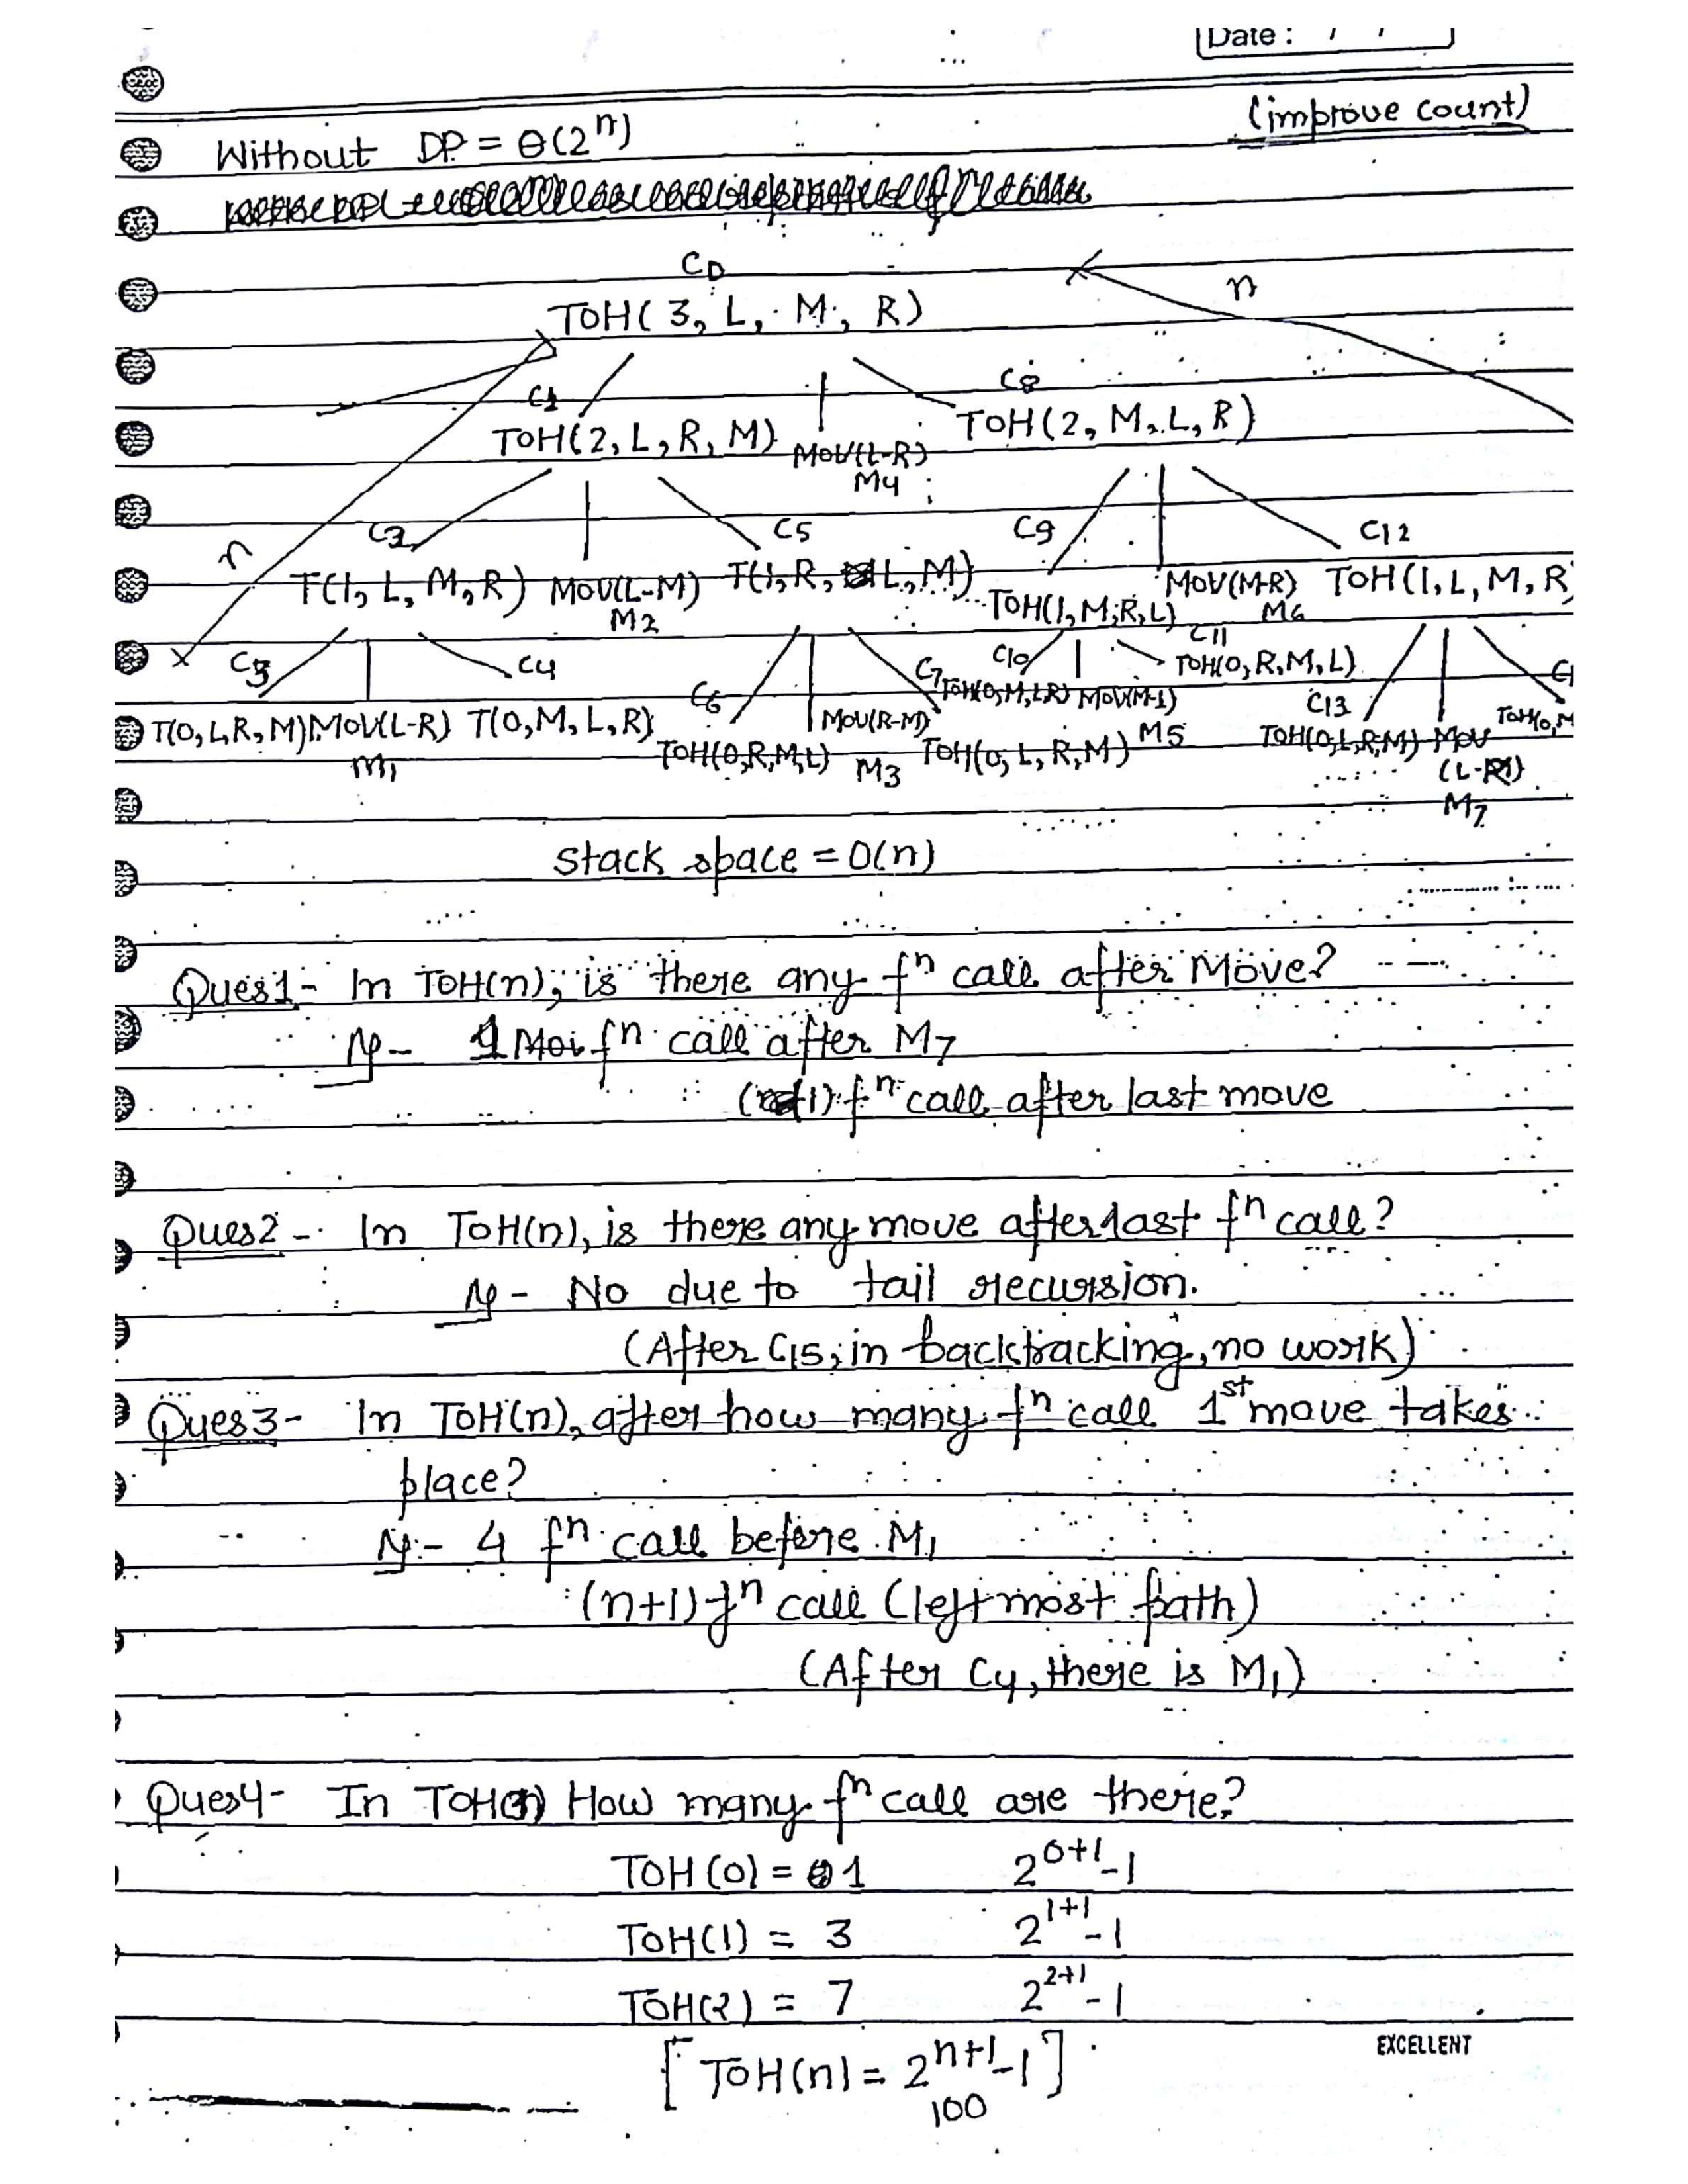 Date : / /
(improve count)
Without DP = Θ(2^n)
C0
n
TOH( 3, L, M, R)
C1 C8
TOH(2, L, R, M) MOV(L-R) TOH(2, M, L, R)
M4
C2 C5 C9 C12
n
T(1, L, M, R) MOV(L-M) T(1, R, L, M) TOH(1, M, R, L) MOV(M-R) TOH(1, L, M, R)
M2 M6
C3 C4 C6 C7 C10 C11 C13
TOH(0, M, L R) MOV(M-L) TOH(0, R, M, L)
T(0, L R, M) MOV(L-R) T(0, M, L, R) MOV(R-M) M5 TOH(0, M
M1 TOH(0, R, M, L) M3 TOH(0, L, R, M) TOH(0, L, R, M) MOV
(L-R)
M7
stack space = O(n)
Ques1- In TOH(n), is there any fn call after Move?
1 fn call after M7
fn call after last move
Ques2 - In TOH(n), is there any move after last fn call?
- No due to tail recursion.
(After C15, in backtracking, no work)
Ques3- In TOH(n), after how many fn call 1st move takes
place?
- 4 fn call before M1
(n+1) fn call (left most path)
(After C4, there is M1)
Ques4- In TOH(n) How many fn call are there?
TOH (0) = 1 2^0+1 -1
TOH(1) = 3 2^1+1 -1
TOH(2) = 7 2^2+1 -1
[ TOH(n) = 2^n+1 -1 ]
100
EXCELLENT